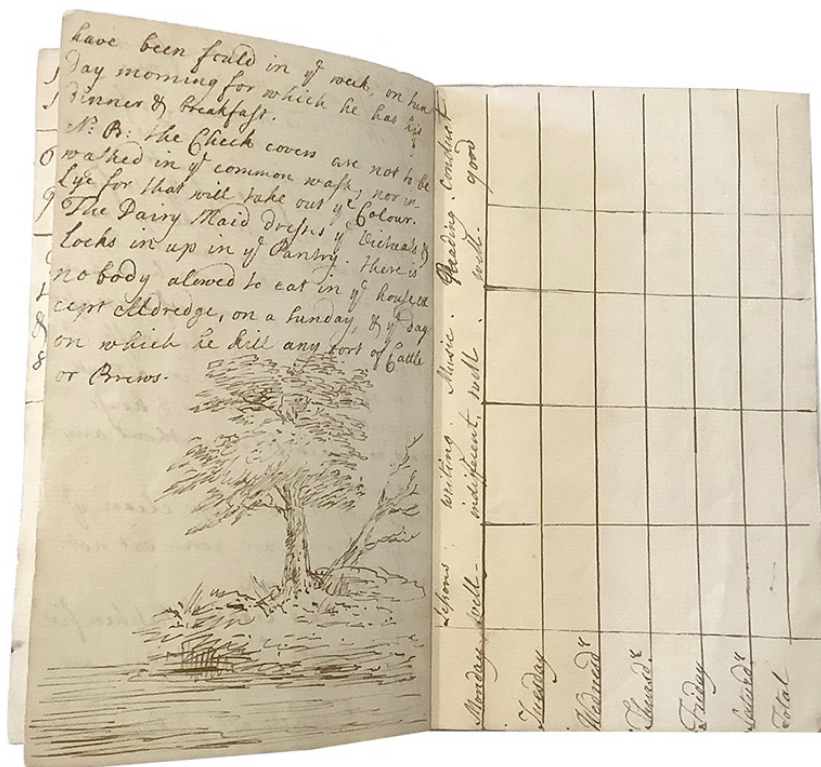 have been fould in yͤ week, on sun
day morning for which he has his
dinner & breakfast.
N: B: the Check covers are not to be
washed in yͤ common wash, nor in
Lye for that will take out yͤ Colour.
The Dairy Maid dresses yͤ Victuals &
locks in up in yͤ Pantry. there is
nobody alowed to eat in yͤ house ex
cept Aldredge, on a sunday, & yͤ day
on which he kill any sort of Cattle
or Brews.
Lessons. writing. Music. Reading. Conduct
Monday well- indifferent, well. well. good
Tuesday
Wednesdʸ
Thursdʸ
Friday
Saturdʸ
Total